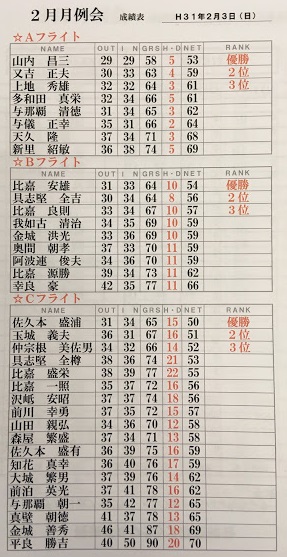 ２月月例会 成績表 H３１年２月３日（日）
☆Aフライト
NAME OUT I N GRS H・D NET RANK
山内 昌三 29 29 58 5 53 優勝
又吉 正夫 30 33 63 4 59 ２位
上地 秀雄 32 32 64 3 61 ３位
多和田 真栄 32 34 66 5 61
与那覇 清徳 31 34 65 3 62
与儀 正幸 35 31 66 2 64
天久 隆 37 34 71 3 68
新里 紹敏 36 38 74 5 69
☆Bフライト
NAME OUT I N GRS H・D NET RANK
比嘉 安雄 31 33 64 10 54 優勝
具志堅 全吉 30 34 64 8 56 ２位
比嘉 良則 33 34 67 10 57 ３位
我如古 清治 34 35 69 10 59
金城 洪光 33 36 69 10 59
奥間 朝孝 37 33 70 11 59
阿波連 俊夫 34 36 70 11 59
比嘉 源勝 39 34 73 11 62
幸良 豪 42 35 77 11 66
☆Cフライト
NAME OUT I N GRS H・D NET RANK
佐久本 盛浦 31 34 65 15 50 優勝
玉城 義夫 36 31 67 16 51 ２位
仲宗根 美佐男 34 32 66 14 52 ３位
具志堅 全樽 38 36 74 21 53
比嘉 盛栄 38 39 77 22 55
比嘉 一照 35 37 72 16 56
沢岻 安昭 37 37 74 18 56
前川 幸勇 37 35 72 15 57
山田 親弘 34 36 70 12 58
森屋 繁盛 37 34 71 13 58
佐久本 盛有 36 39 75 16 59
知花 真幸 36 40 76 17 59
大城 繁男 37 39 76 14 62
前泊 英光 37 41 78 16 62
与那覇 朝一 35 42 77 12 65
真壁 朝徳 41 37 78 13 65
金城 善秀 46 41 87 18 69
平良 勝吉 40 50 90 20 70